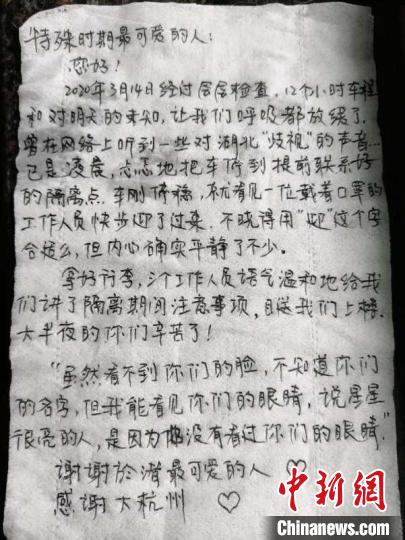 特殊时期最可爱的人：
您好！
2020年3月14日经过层层检查，12个小时车程
和对明天的未知，让我们呼吸都放缓了。
曾在网络上听到一些对湖北“歧视”的声音…
已是凌晨，忐忑地把车停到提前联系好
的隔离点，车刚停稳，就看见一位戴着口罩的
工作人员快步迎了过来，不晓得用“迎”这个字
合适么，但内心确实平静了不少。
拿好行李，三个工作人员语气温和地给我
们讲了隔离期间注意事项，目送我们上楼。
大半夜的你们辛苦了！
“虽然看不到你们的脸，不知道你们
的名字，但我能看见你们的眼睛，说星星
很亮的人，是因为他没有看过你们的眼睛。”
谢谢於潜最可爱的人 ♡
感谢大杭州 ♡
中新网
CHINANEWS.COM